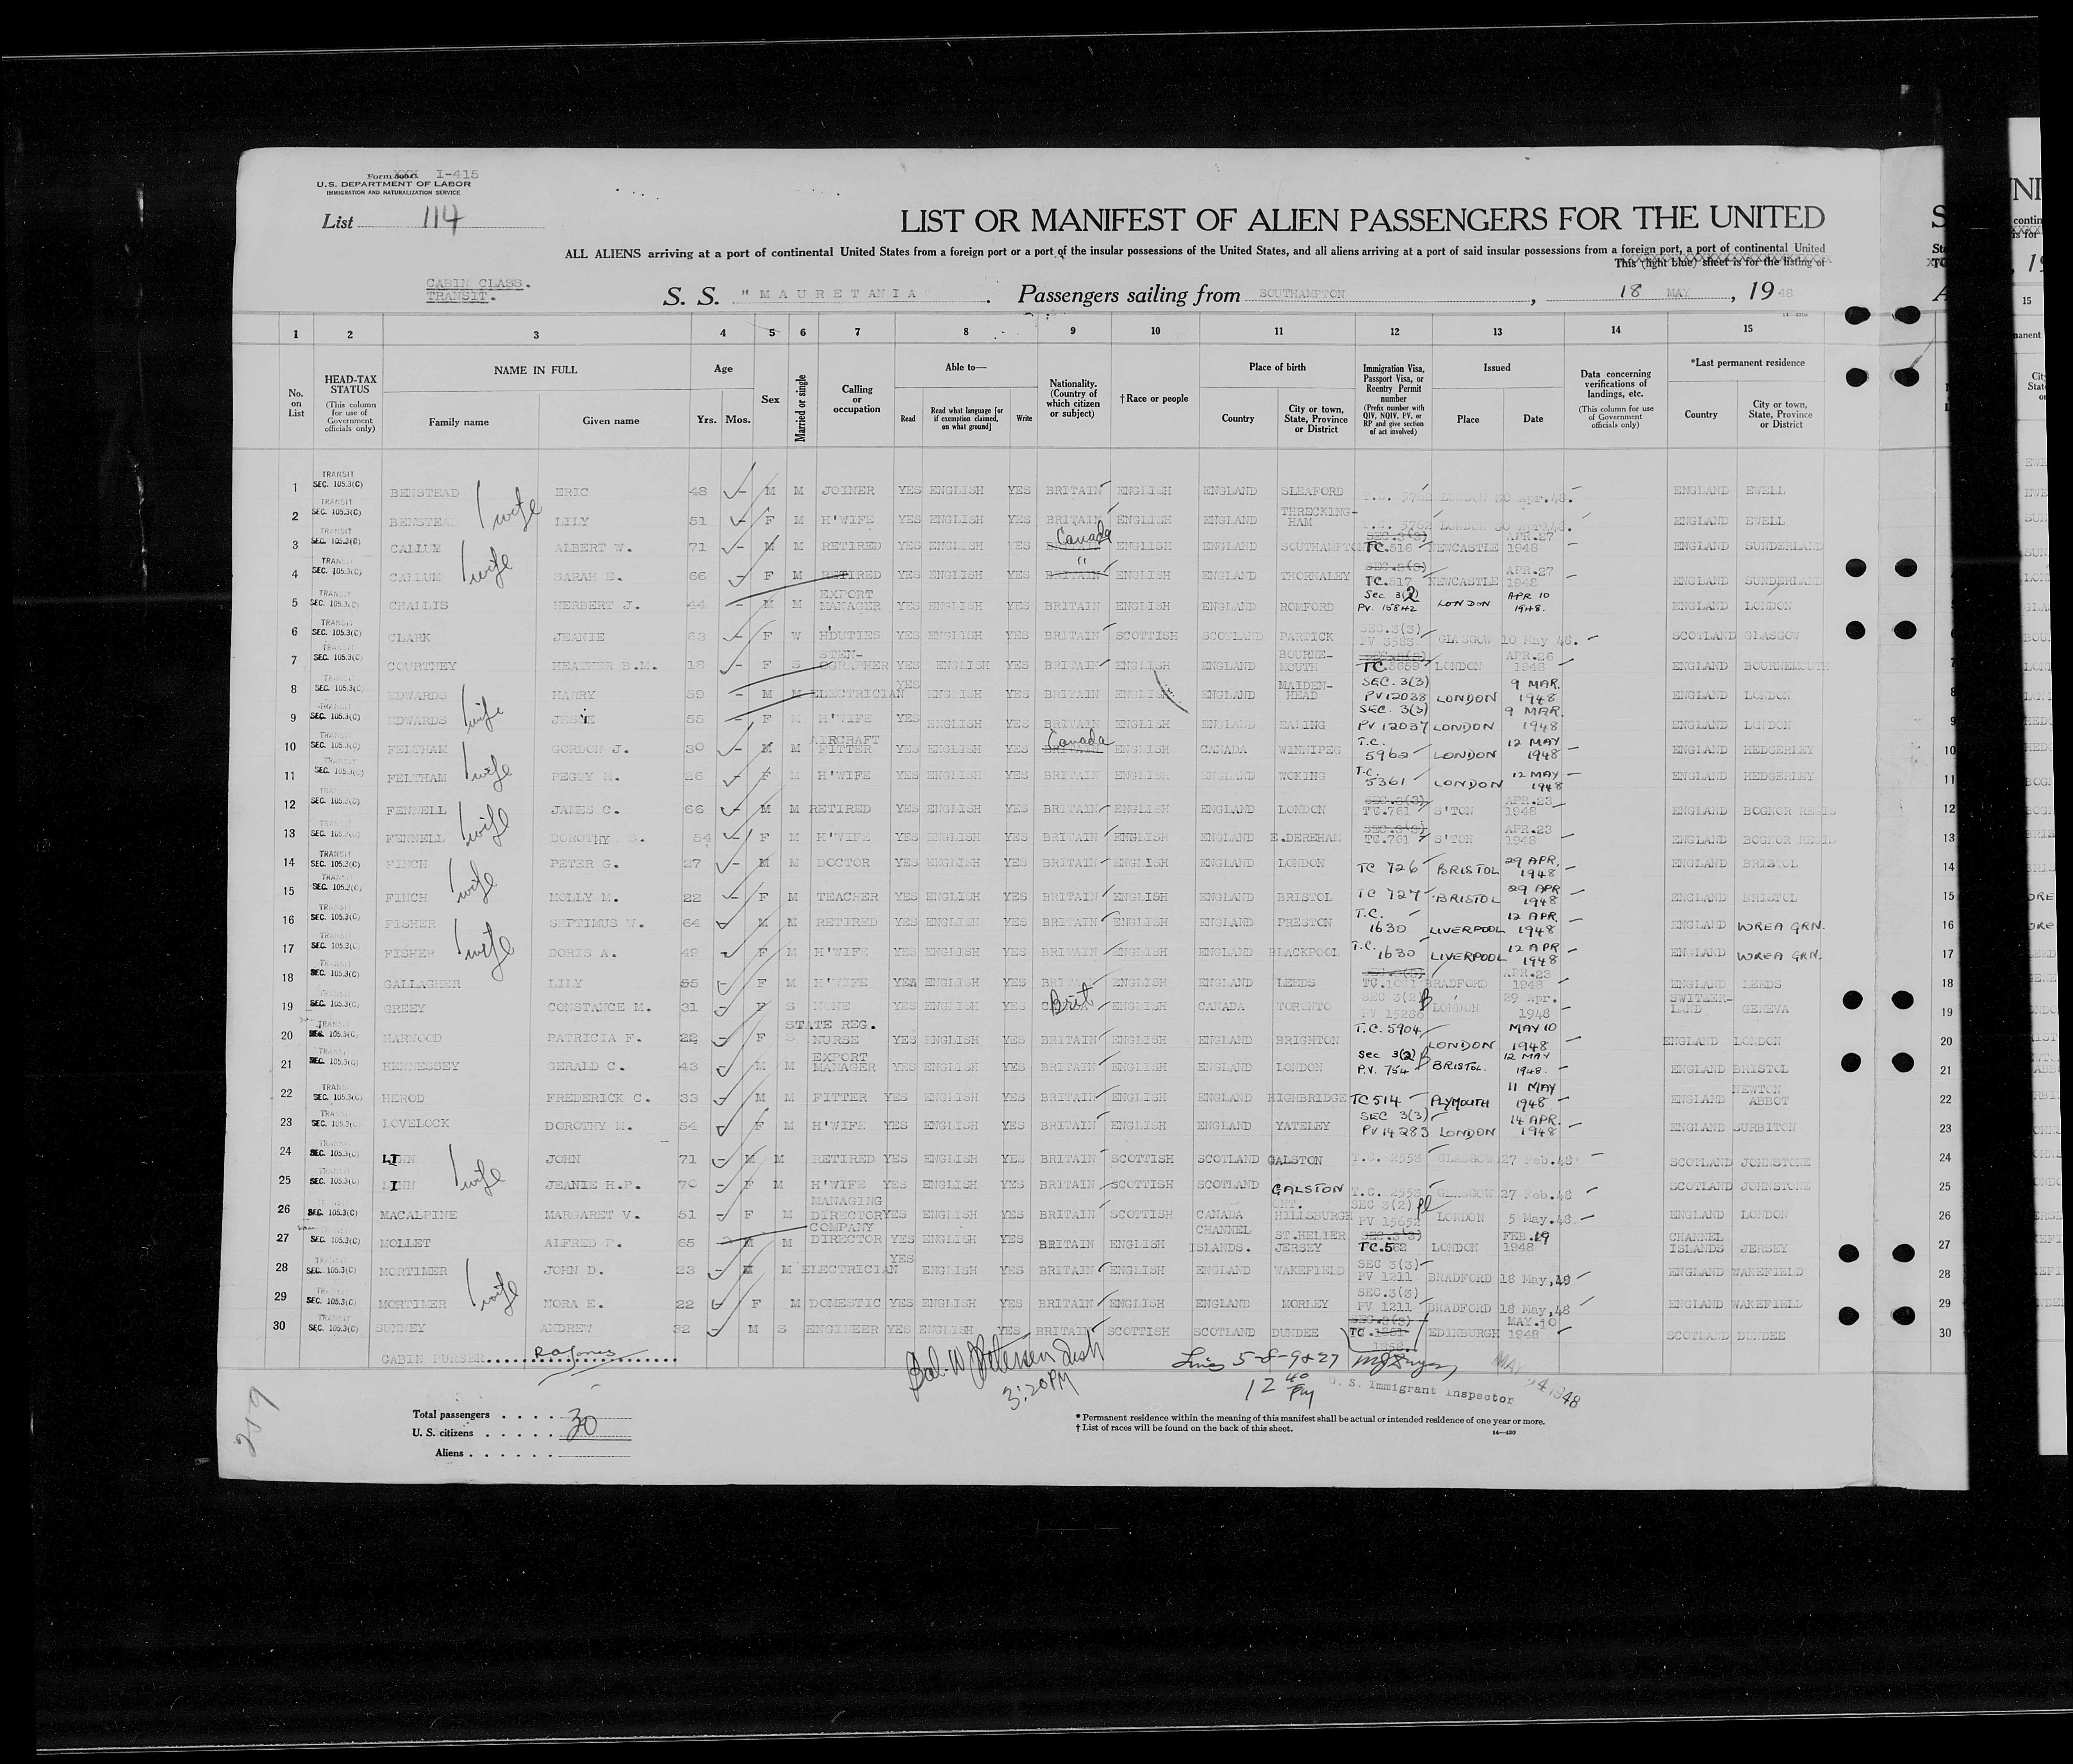 Form I-415
U.S. DEPARTMENT OF LABOR
IMMIGRATION AND NATURALIZATION SERVICE
List 114
LIST OR MANIFEST OF ALIEN PASSENGERS FOR THE UNITED
ALL ALIENS arriving at a port of continental United States from a foreign port or a port of the insular possessions of the United States, and all aliens arriving at a port of said insular possessions from a foreign port, a port of continental United
This (light blue) sheet is for the listing of
CABIN CLASS.
TRANSIT.
S. S. "MAURETANIA. Passengers sailing from SOUTHAMPTON, 18 MAY, 1948
1 2 3 4 5 6 7 8 9 10 11 12 13 14 15
No. on List
HEAD-TAX STATUS (This column for use of Government officials only)
NAME IN FULL
Family name Given name
Age Yrs. Mos.
Sex
Married or single
Calling or occupation
Able to— Read Read what language [or if exemption claimed, on what ground] Write
Nationality. (Country of which citizen or subject)
†Race or people
Place of birth Country City or town, State, Province or District
Immigration Visa, Passport Visa, or Reentry Permit number (Prefix number with QIV, NQIV, PV, or RP and give section of act involved)
Issued Place Date
Data concerning verifications of landings, etc. (This column for use of Government officials only)
*Last permanent residence Country City or town, State, Province or District
1 TRANSIT SEC. 105.3(C) BENSTEAD ERIC 48 M M JOINER YES ENGLISH YES BRITAIN ENGLISH ENGLAND SLEAFORD T.C. 5762 LONDON 30 Apr.48. ENGLAND EWELL
2 TRANSIT SEC. 105.3(C) BENSTEAD wife LILY 51 F M H'WIFE YES ENGLISH YES BRITAIN ENGLISH ENGLAND THRECKING-HAM T.C. 5762 LONDON 30 April48. ENGLAND EWELL
3 TRANSIT SEC. 105.3(C) CALLUM ALBERT W. 71 M M RETIRED YES ENGLISH YES Canada ENGLISH ENGLAND SOUTHAMPTON SEC.3(3) TC.516 NEWCASTLE APR.27 1948 ENGLAND SUNDERLAND
4 TRANSIT SEC. 105.3(C) CALLUM wife SARAH E. 66 F M RETIRED YES ENGLISH YES BRITAIN " ENGLISH ENGLAND THORNALEY SEC.3(3) TC.517 NEWCASTLE APR.27 1948 ENGLAND SUNDERLAND
5 TRANSIT SEC. 105.3(C) CHALLIS HERBERT J. 44 M M EXPORT MANAGER YES ENGLISH YES BRITAIN ENGLISH ENGLAND ROMFORD Sec 3(2) PV. 15842 LONDON APR 10 1948. ENGLAND LONDON
6 TRANSIT SEC. 105.3(C) CLARK JEANIE 63 F W H'DUTIES YES ENGLISH YES BRITAIN SCOTTISH SCOTLAND PARTICK SEC.3(3) PV 3583 GLASGOW 10 May 48. SCOTLAND GLASGOW
7 TRANSIT SEC. 105.3(C) COURTNEY HEATHER B.M. 18 F S STEN-OGRAPHER YES ENGLISH YES BRITAIN ENGLISH ENGLAND BOURNE-MOUTH SEC.3(3) TC.5659 LONDON APR.26 1948 ENGLAND BOURNEMOUTH
8 TRANSIT SEC. 105.3(C) EDWARDS HARRY 59 M M ELECTRICIAN YES ENGLISH YES BRITAIN ENGLISH ENGLAND MAIDEN-HEAD SEC. 3(3) PV 12038 LONDON 9 MAR. 1948 ENGLAND LONDON
9 TRANSIT SEC. 105.3(C) EDWARDS wife JESSIE 55 F M H'WIFE YES ENGLISH YES BRITAIN ENGLISH ENGLAND EALING SEC. 3(3) PV 12037 LONDON 9 MAR. 1948 ENGLAND LONDON
10 TRANSIT SEC. 105.3(C) FELTHAM GORDON J. 30 M M AIRCRAFT FITTER YES ENGLISH YES Canada ENGLISH CANADA WINNIPEG T.C. 5962 LONDON 12 MAY 1948 ENGLAND HEDGERLEY
11 TRANSIT SEC. 105.3(C) FELTHAM wife PEGGY M. 26 F M H'WIFE YES ENGLISH YES BRITAIN ENGLISH ENGLAND WOKING T.C. 5361 LONDON 12 MAY 1948 ENGLAND HEDGERLEY
12 TRANSIT SEC. 105.3(C) FENNELL JAMES C. 66 M M RETIRED YES ENGLISH YES BRITAIN ENGLISH ENGLAND LONDON SEC.3(3) TC.761 S'TON APR.23 1948 ENGLAND BOGNOR REGIS
13 TRANSIT SEC. 105.3(C) FENNELL wife DOROTHY S. 54 F M H'WIFE YES ENGLISH YES BRITAIN ENGLISH ENGLAND E.DEREHAM SEC.3(3) TC.761 S'TON APR.23 1948 ENGLAND BOGNOR REGIS
14 TRANSIT SEC. 105.3(C) FINCH PETER G. 27 M M DOCTOR YES ENGLISH YES BRITAIN ENGLISH ENGLAND LONDON TC 726 BRISTOL 29 APR. 1948 ENGLAND BRISTOL
15 TRANSIT SEC. 105.3(C) FINCH wife MOLLY M. 22 F M TEACHER YES ENGLISH YES BRITAIN ENGLISH ENGLAND BRISTOL TC 727 BRISTOL 29 APR 1948 ENGLAND BRISTOL
16 TRANSIT SEC. 105.3(C) FISHER SEPTIMUS W. 64 M M RETIRED YES ENGLISH YES BRITAIN ENGLISH ENGLAND PRESTON T.C. 1630 LIVERPOOL 12 APR. 1948 ENGLAND WREA GRN.
17 TRANSIT SEC. 105.3(C) FISHER wife DORIS A. 49 F M H'WIFE YES ENGLISH YES BRITAIN ENGLISH ENGLAND BLACKPOOL T.C. 1630 LIVERPOOL 12 APR 1948 ENGLAND WREA GRN.
18 TRANSIT SEC. 105.3(C) GALLAGHER LILY 55 F M H'WIFE YES ENGLISH YES BRITAIN ENGLISH ENGLAND LEEDS SEC.3(3) BRADFORD APR.23 1948 ENGLAND LEEDS
19 SEC. 105.3(C) GREEY CONSTANCE M. 31 F S NONE YES ENGLISH YES Brit ENGLISH CANADA TORONTO SEC 3(2) PV 15286 LONDON 29 Apr. 1948 SWITZER-LAND GENEVA
20 TRANSIT SEC. 105.3(C) HARWOOD PATRICIA F. 22 F S STATE REG. NURSE YES ENGLISH YES BRITAIN ENGLISH ENGLAND BRIGHTON T.C. 5904 LONDON MAY 10 1948 ENGLAND LONDON
21 TRANSIT SEC. 105.3(C) HENNESSEY GERALD C. 43 M M EXPORT MANAGER YES ENGLISH YES BRITAIN ENGLISH ENGLAND LONDON Sec 3(2) P.V. 754 BRISTOL. 12 MAY 1948. ENGLAND BRISTOL
22 TRANSIT SEC. 105.3(C) HEROD FREDERICK C. 33 M M FITTER YES ENGLISH YES BRITAIN ENGLISH ENGLAND HIGHBRIDGE TC 514 PLYMOUTH 11 MAY 1948 ENGLAND NEWTON ABBOT
23 TRANSIT SEC. 105.3(C) LOVELOCK DOROTHY M. 54 F M H'WIFE YES ENGLISH YES BRITAIN ENGLISH ENGLAND YATELEY SEC 3(3) PV 14283 LONDON 14 APR. 1948 ENGLAND SURBITON
24 TRANSIT SEC. 105.3(C) LINN JOHN 71 M M RETIRED YES ENGLISH YES BRITAIN SCOTTISH SCOTLAND GALSTON T.C. 2553 GLASGOW 27 Feb.48 SCOTLAND JOHNSTONE
25 TRANSIT SEC. 105.3(C) LINN wife JEANIE H.P. 70 F M H'WIFE YES ENGLISH YES BRITAIN SCOTTISH SCOTLAND GALSTON T.C. 2553 GLASGOW 27 Feb.48 SCOTLAND JOHNSTONE
26 TRANSIT SEC. 105.3(C) MACALPINE MARGARET V. 51 F M MANAGING DIRECTOR YES ENGLISH YES BRITAIN SCOTTISH CANADA ONT. HILLSBURGH SEC 3(2) PV 15652 LONDON 5 May.48 ENGLAND LONDON
27 TRANSIT SEC. 105.3(C) MOLLET ALFRED P. 65 M M COMPANY DIRECTOR YES ENGLISH YES BRITAIN ENGLISH CHANNEL ISLANDS. ST.HELIER JERSEY SEC.3(3) TC.562 LONDON FEB.19 1948 CHANNEL ISLANDS JERSEY
28 TRANSIT SEC. 105.3(C) MORTIMER JOHN D. 23 M M ELECTRICIAN YES ENGLISH YES BRITAIN ENGLISH ENGLAND WAKEFIELD SEC 3(3) PV 1211 BRADFORD 18 May,49 ENGLAND WAKEFIELD
29 TRANSIT SEC. 105.3(C) MORTIMER wife NORA E. 22 F M DOMESTIC YES ENGLISH YES BRITAIN ENGLISH ENGLAND MORLEY SEC.3(3) PV 1211 BRADFORD 18 May,48 ENGLAND WAKEFIELD
30 TRANSIT SEC. 105.3(C) SUNNEY ANDREW 32 M S ENGINEER YES ENGLISH YES BRITAIN SCOTTISH SCOTLAND DUNDEE SEC.3(3) TC.1851 1852. EDINBURGH MAY.10 1948 SCOTLAND DUNDEE
CABIN PURSER
3:20PM
Lines 5-8-9&27
12 40 PM
U. S. Immigrant Inspector MAY 24 1948
Total passengers 30
U. S. citizens
Aliens
*Permanent residence within the meaning of this manifest shall be actual or intended residence of one year or more.
†List of races will be found on the back of this sheet.
14—430